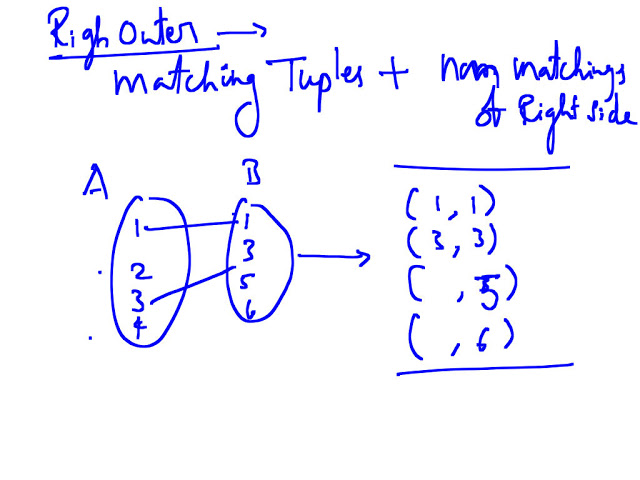 Righ Outer →
matching Tuples + non matchings
of Right side
A B
1 1
2 3
3 5
4 6
(1, 1)
(3, 3)
( , 5)
( , 6)